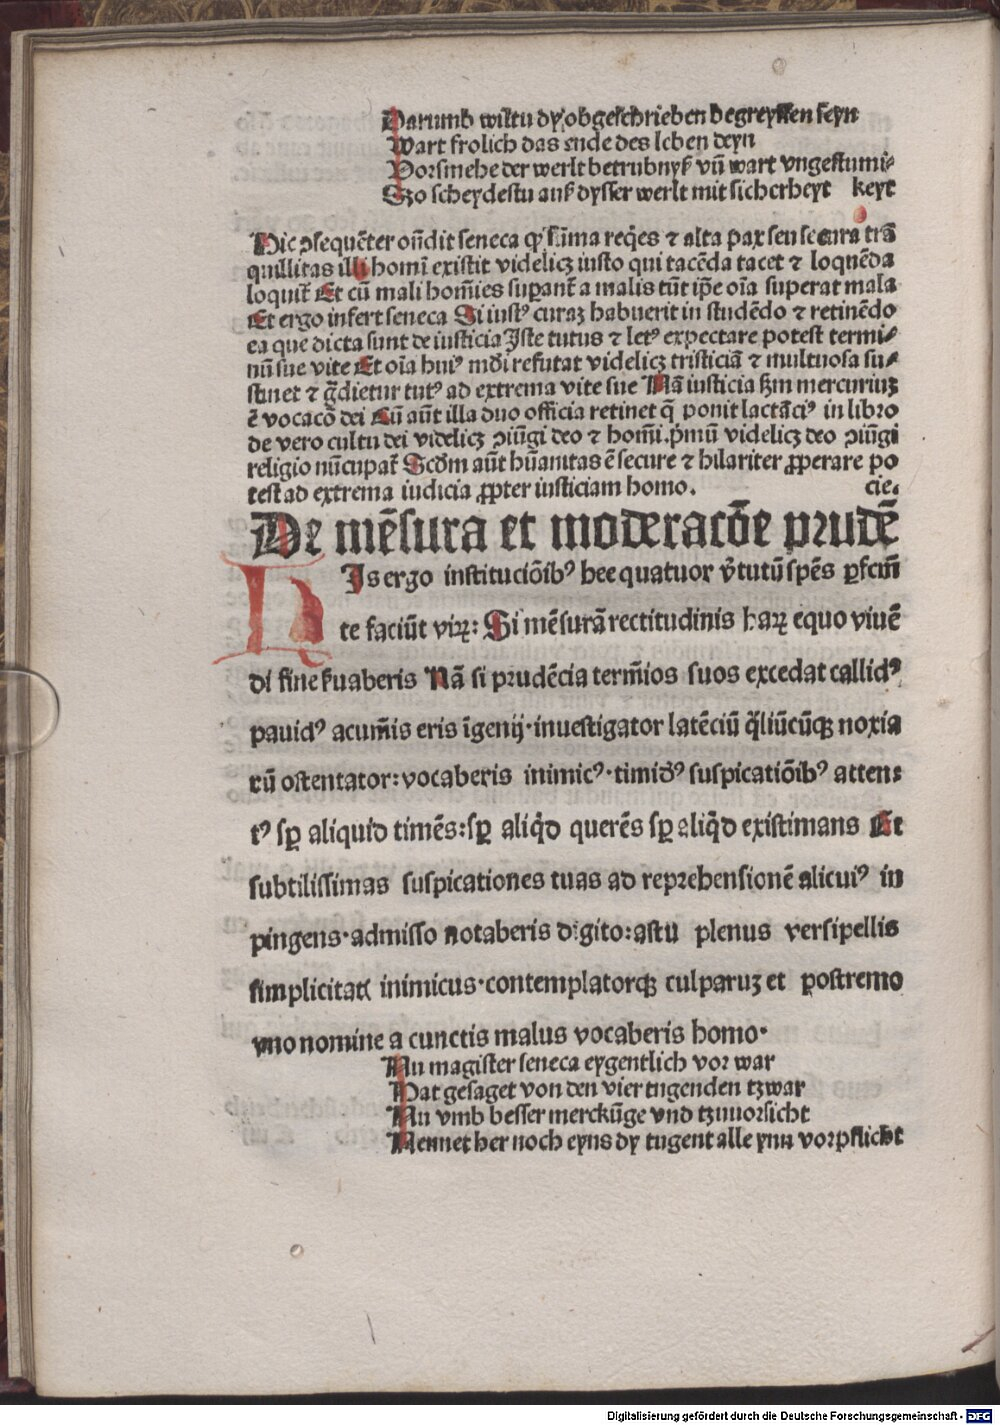 Darumb wiltu dy obgeschrieben begreyffen seyn
Wart frolich das ende des leben deyn
Vorsmehe der werlt betrubnyß vñ wart vngestumi⸗
Szo scheydestu auß dysser werlt mit sicherheyt keyt
Hic ꝯsequẽter oñdit seneca ꝙ sũma reqͥes ⁊ alta pax seu secura trã
quillitas illi homĩ existit videlicꝫ iusto qui tacẽda tacet ⁊ loquẽda
loquit᷑ Et cũ mali homĩes suꝑant᷑ a malis tũt ip̃e oĩa superat mala
Et ergo infert seneca Si iustꝰ curaꝫ habuerit in studẽdo ⁊ retinẽdo
ea que dicta sunt de iusticia Iste tutus ⁊ letꝰ expectare potest termi⸗
nũ sue vite Et oĩa huiꝰ mũdi refutat videlicꝫ tristiciã ⁊ multuosa su⸗
stinet ⁊ gͣdietur tutꝰ ad extrema vite sue Nã iusticia ẜm mercuriuꝫ
ẽ vocacõ dei Cũ aũt illa duo officia retinet ꝗ̃ ponit lactãciꝰ in libro
de vero cultu dei videlicꝫ ꝯiũgi deo ⁊ homĩ. pͥmũ videlicꝫ deo ꝯiũgi
religio nũcupat᷑ Scd̃m aũt hũanitas ẽ secure ⁊ hilariter ꝓperare po
test ad extrema iudicia ꝓpter iusticiam homo. cie.
De mẽsura et moderacõe prudẽ
HIs ergo instituciõibꝰ hee quatuor v̾tutũ spẽs ꝑfcm̃
te faciũt viꝝ: Si mẽsurã rectitudinis haꝝ equo viuẽ
di fine ẜuaberis Nã si prudẽcia term̃ios suos excedat callidꝰ
pauidꝰ acum̃is eris ĩgenij·inuestigator latẽciũ qͣliũcũꝗꝫ noxia
rũ ostentator: vocaberis inimicꝰ·timidꝰ suspicatiõibꝰ atten⸗
tꝰ sꝑ aliquid timẽs: sꝑ aliqͥd querẽs sꝑ aliqͥd existimans Et
subtilissimas suspicationes tuas ad reprehensionẽ alicuiꝰ in
pingens·admisso notaberis digito: astu plenus versipellis
simplicitatꝭ inimicus·contemplatorqꝫ culparuꝫ et postremo
vno nomine a cunctis malus vocaberis homo·
Nu magister seneca eygentlich vor war
Hat gesaget von den vier tugenden tzwar
Nu vmb besser merckũge vnd tzuuorsicht
Nennet her noch eyns dy tugent alle ynn vorpflicht
Digitalisierung gefördert durch die Deutsche Forschungsgemeinschaft - DFG